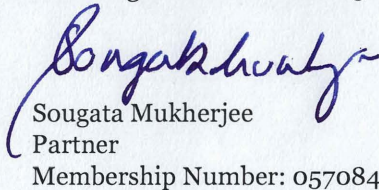 Sougata Mukherjee
Partner
Membership Number: 057084